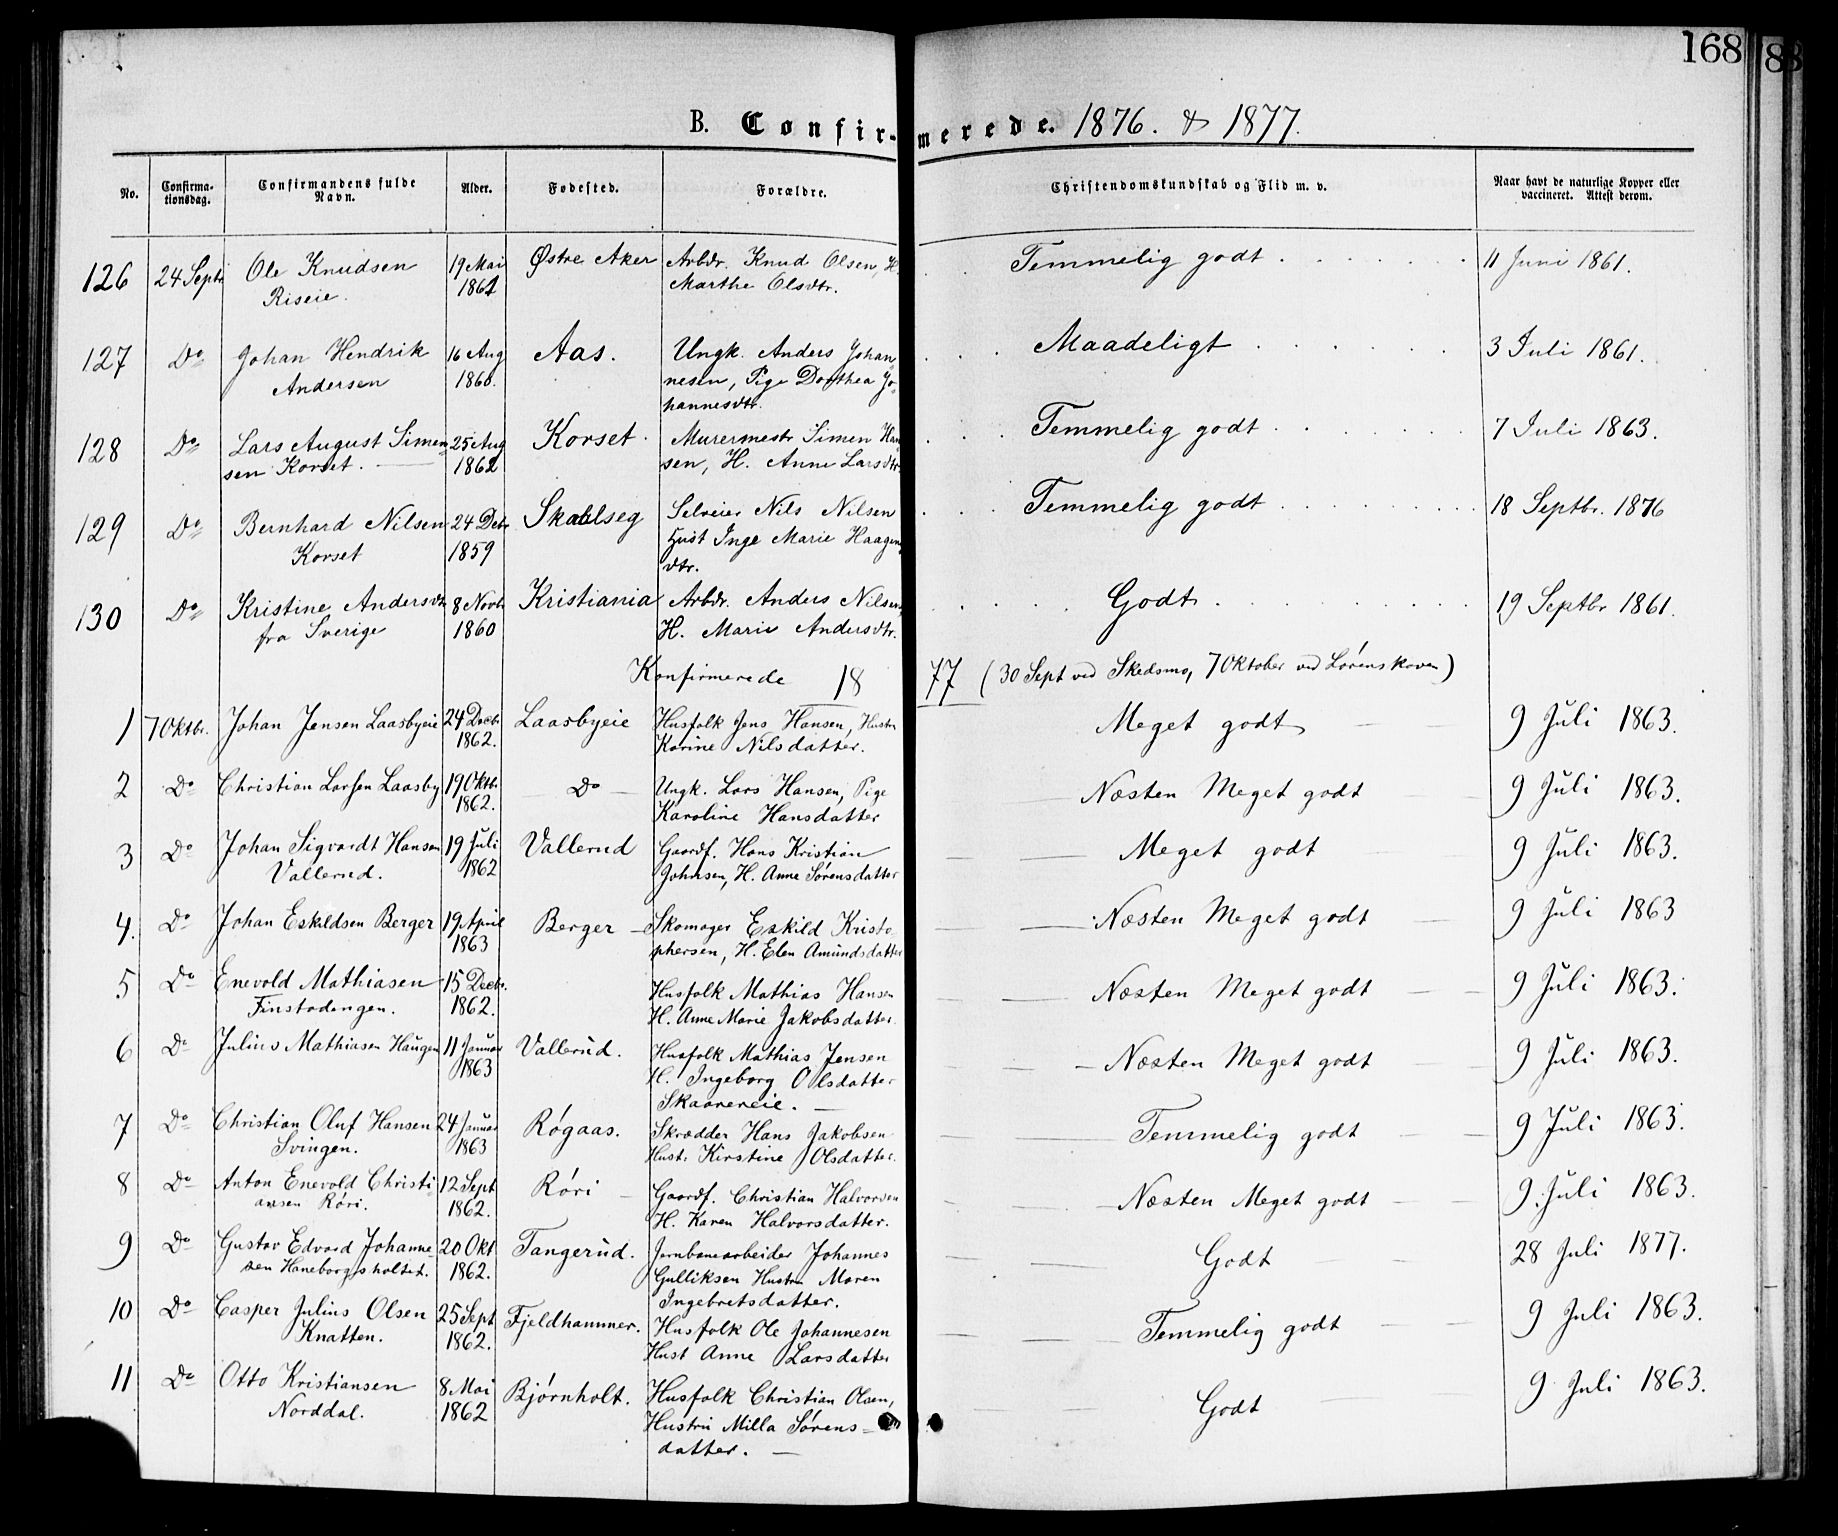 168
88
B. Confirmerede. 1876. & 1877.
No. Confirmationsdag. Confirmandens fulde Navn. Alder. Fødested. Forældre. Christendomskundskab og Flid m. v. Naar havt de naturlige Kopper eller vaccineret. Attest derom.
126 24 Septr Ole Knudsen 19 Mai Østre Aker Arbdr. Knud Olsen, H. Temmelig godt 11 Juni 1861.
Riseie. 1861 Marthe Olsdtr.
127 Do Johan Hendrik 16 Aug Aas. Ungk. Anders Johan Maadeligt 3 Juli 1861.
Andersen 1860. nesen, Pige Dorthea Jo-
hannesdtr.
128 Do Lars August Simen 25 Aug Korset. Murermestr Simen Han Temmelig godt 7 Juli 1863.
sen Korset. 1862 sen, H. Anne Larsdtr.
129 Do Bernhard Nilsen 24 Debr Skadlseg Selveier Nils Nilsen Temmelig godt 18 Septbr. 1876
Korset 1859 Hust Inge Marie Haagens
dtr.
130 Do Kristine Andersdtr 8 Novb. Kristiania Arbdr. Anders Nilsen, Godt. 19 Septbr 1861.
fra Sverige 1860 H. Marie Andersdtr.
Konfirmerede 18 77 (30 Sept ved Skedsmo, 7 Oktober ved Lørenskoven)
1 7 Oktbr. Johan Jensen Laasbyeie 24 Decbr Laasbyeie Husfolk Jens Hansen, Hustru Meget godt 9 Juli 1863.
1862. Karine Nilsdatter.
2 Do Christian Larsen Laasby 19 Oktbr. Do Ungk. Lars Hansen, Pige Næsten Meget godt 9 Juli 1863.
1862. Karoline Hansdatter
3 Do Johan Sigvardt Hansen 19 Juli Vallerud Gaardf. Hans Kristian Meget godt 9 Juli 1863.
Vallerud. 1862 Johnsen, H. Anne Sørensdatter
4. Do Johan Eskildsen Berger 19 April Berger Skomager Eskild Kristo- Næsten Meget godt 9 Juli 1863
1863 phersen, H. Elen Amundsdatter
5 Do Enevold Mathiasen 15 Decbr. Husfolk Mathias Hansen Næsten Meget godt 9 Juli 1863.
Finstadengen. 1862. H. Anne Marie Jakobsdatter.
6 Do Julius Mathiasen Haugen 11 Januar Vallerud. Husfolk Mathias Jensen Næsten Meget godt 9 Juli 1863.
1863 H. Ingeborg Olsdatter
Skaarereie.
7 Do Christian Oluf Hansen 24 Januar Røgaas. Skrædder Hans Jakobsen Temmelig godt 9 Juli 1863.
Svingen. 1863 Hust. Kirstine Olsdatter.
8 Do Anton Enevold Christi- 12 Sept Røri Gaardf. Christian Halvorsen Næsten Meget godt 9. Juli 1863.
ansen Røri. 1862. H. Karen Halvorsdatter.
9 Do Gustav Edvard Johanne 20 Okt Tangerud. Jernbanearbeider Johannes Godt 28 Juli 1877.
sen Haneborgsholtet. 1862. Gulliksen Hustru Maren
Ingebretsdatter.
10 Do Casper Julius Olsen 25 Sept Fjeldhammer. Husfolk Ole Johannesen Temmelig godt 9 Juli 1863.
Knatten. 1862. Hust Anne Larsdatter
11 Do Otto Kristiansen 8 Mai Bjørnholt. Husfolk Christian Olsen, Godt 9 Juli 1863.
Norddal. 1862 Hustru Milla Sørens-
datter.